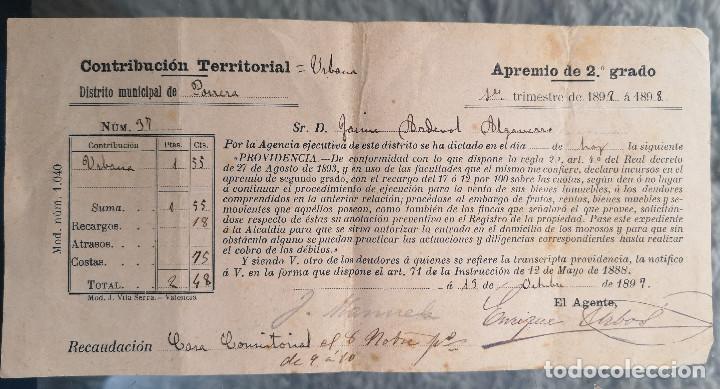 Contribución Territorial = Urbana
Apremio de 2.º grado
Distrito municipal de Porrera
1er trimestre de 1897 á 1898
NÚM. 37
Sr. D. Jaime Ardevol
Contribución Ptas. Cts.
Urbana 1 55
Suma 1 55
Recargos 18
Atrasos
Costas 75
TOTAL 2 48
Mod. núm. 1.040
Mod. J. Vila Serra.-Valencia
Por la Agencia ejecutiva de este distrito se ha dictado en el día de hoy la siguiente
«PROVIDENCIA.—De conformidad con lo que dispone la regla 2.ª, art. 4.º del Real decreto
de 27 de Agosto de 1893, y en uso de las facultades que el mismo me confiere, declaro incursos en el
apremio de segundo grado, con el recargo del 17 ó 12 por 100 sobre las cuotas, según den ó no lugar
á continuar el procedimiento de ejecución para la venta de sus bienes inmuebles, á los deudores
comprendidos en la anterior relación; procédase al embargo de frutos, rentas, bienes muebles y se-
movientes que aquéllos posean, como también de los fincas que señalará el que provee, solicitán-
dose respecto de éstas su anotación preventiva en el Registro de la propiedad. Pase este expediente
á la Alcaldía para que se sirva autorizar la entrada en el domicilio de los morosos y para que sin
obstáculo alguno se puedan practicar las actuaciones y diligencias correspondientes hasta realizar
el cobro de los débitos.»
Y siendo V. otro de los deudores á quienes se refiere la transcripta providencia, la notifico
á V. en la forma que dispone el art. 71 de la Instrucción de 12 de Mayo de 1888.
á 15 de Octubre de 1897.
El Agente,
Enrique
Recaudación Casa Consistorial el 6 Nobre
de 9 á 10
todocoleccion